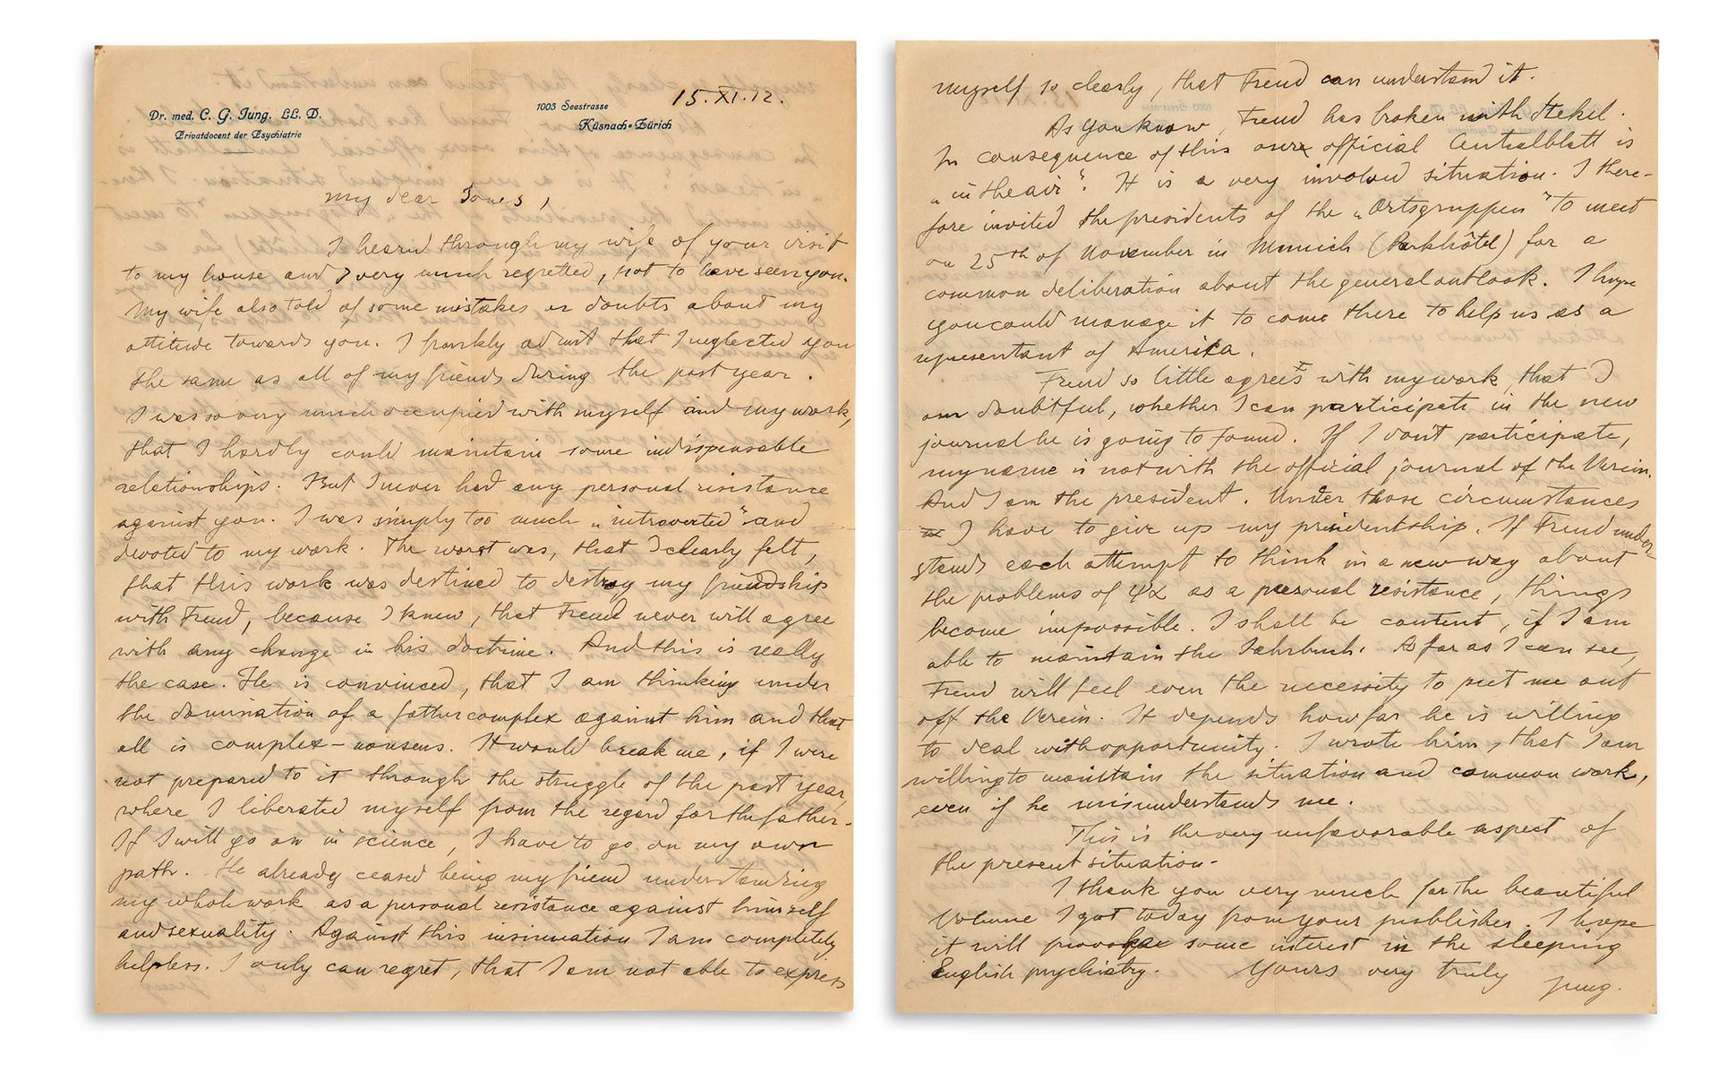 Dr. med. C. G. Jung, LL. D.
Privatdocent der Psychiatrie
1003 Seestrasse
Küsnach-Zürich
15.XI.12.
My dear Jones,
I heard through my wife of your visit
to my house and I very much regretted, not to have seen you.
My wife also told of some mistakes or doubts about my
attitude towards you. I frankly admit that I neglected you
the same as all of my friends during the past year.
I was so very much occupied with myself and my work,
that I hardly could maintain some indispensable
relationships. But I never had any personal resistance
against you. I was simply too much „introverted" and
devoted to my work. The worst was, that I clearly felt,
that this work was destined to destroy my friendship
with Freud, because I knew, that Freud never will agree
with any change in his doctrine. And this is really
the case. He is convinced, that I am thinking under
the domination of a father complex against him and that
all is complex-nonsens. It would break me, if I were
not prepared to it through the struggle of the past year,
where I liberated myself from the regard for the father.
If I will go on in science, I have to go on my own
path. He already ceased being my friend understanding
my whole work as a personal resistance against himself
and sexuality. Against this insinuation I am completely
helpless. I only can regret, that I am not able to express
myself so clearly, that Freud can understand it.
As you know, Freud has broken with Stekel.
In consequence of this our official Centralblatt is
„in the air". It is a very involved situation. I there-
fore invited the presidents of the „Ortsgruppen" to meet
on 25th of November in Munich (Parkhôtel) for a
common deliberation about the general outlook. I hope
you could manage it to come there to help us as a
representant of Amerika.
Freud so little agrees with my work, that I
am doubtful, whether I can participate in the new
journal he is going to found. If I don't participate,
my name is not with the official journal of the Verein.
And I am the president. Under those circumstances
I have to give up my presidentship. If Freud under-
stands each attempt to think in a new way about
the problems of ψα as a personal resistance, things
become impossible. I shall be content, if I am
able to maintain the Jahrbuch. As far as I can see,
Freud will feel even the necessity to put me out
off the Verein. It depends how far he is willing
to deal with opportunity. I wrote him, that I am
willing to maintain the situation and common work,
even if he misunderstands me.
This is the very unfavorable aspect of
the present situation.
I thank you very much for the beautiful
volume I got today from your publisher. I hope
it will provoke some interest in the sleeping
English psychiatry. Yours very truly
Jung.